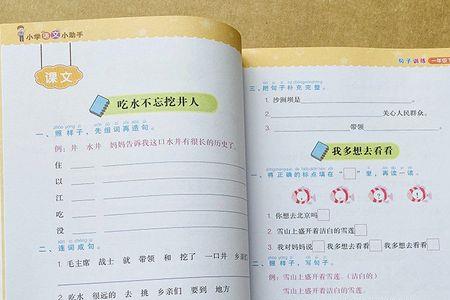 小学语文小助手
课文
吃水不忘挖井人
一、照样子，先组词再造句。
例：井 水井 妈妈告诉我这口水井有很长的历史了。
住
以
江
吃
没
二、连词成句。
1. 毛主席 战士 就 带领 和 挖了 一口井 乡亲们
2. 吃水 很远的 去 挑 乡亲们 要到 地方
句子训练 一年级
三、把句子补充完整。
1. 沙洲坝是
2. 关心人民群众。
3. 带领 。
我多想去看看
一、将正确的标点填在“□”里，再读一读。
1. 你想去北京吗□
2. 雪山上盛开着洁白的雪莲□
3. 我对妈妈说□我多想去看看□我多想去看看□
二、照样子，写句子。
例：雪山上盛开着雪莲。（洁白的）
雪山上盛开着洁白的雪莲。